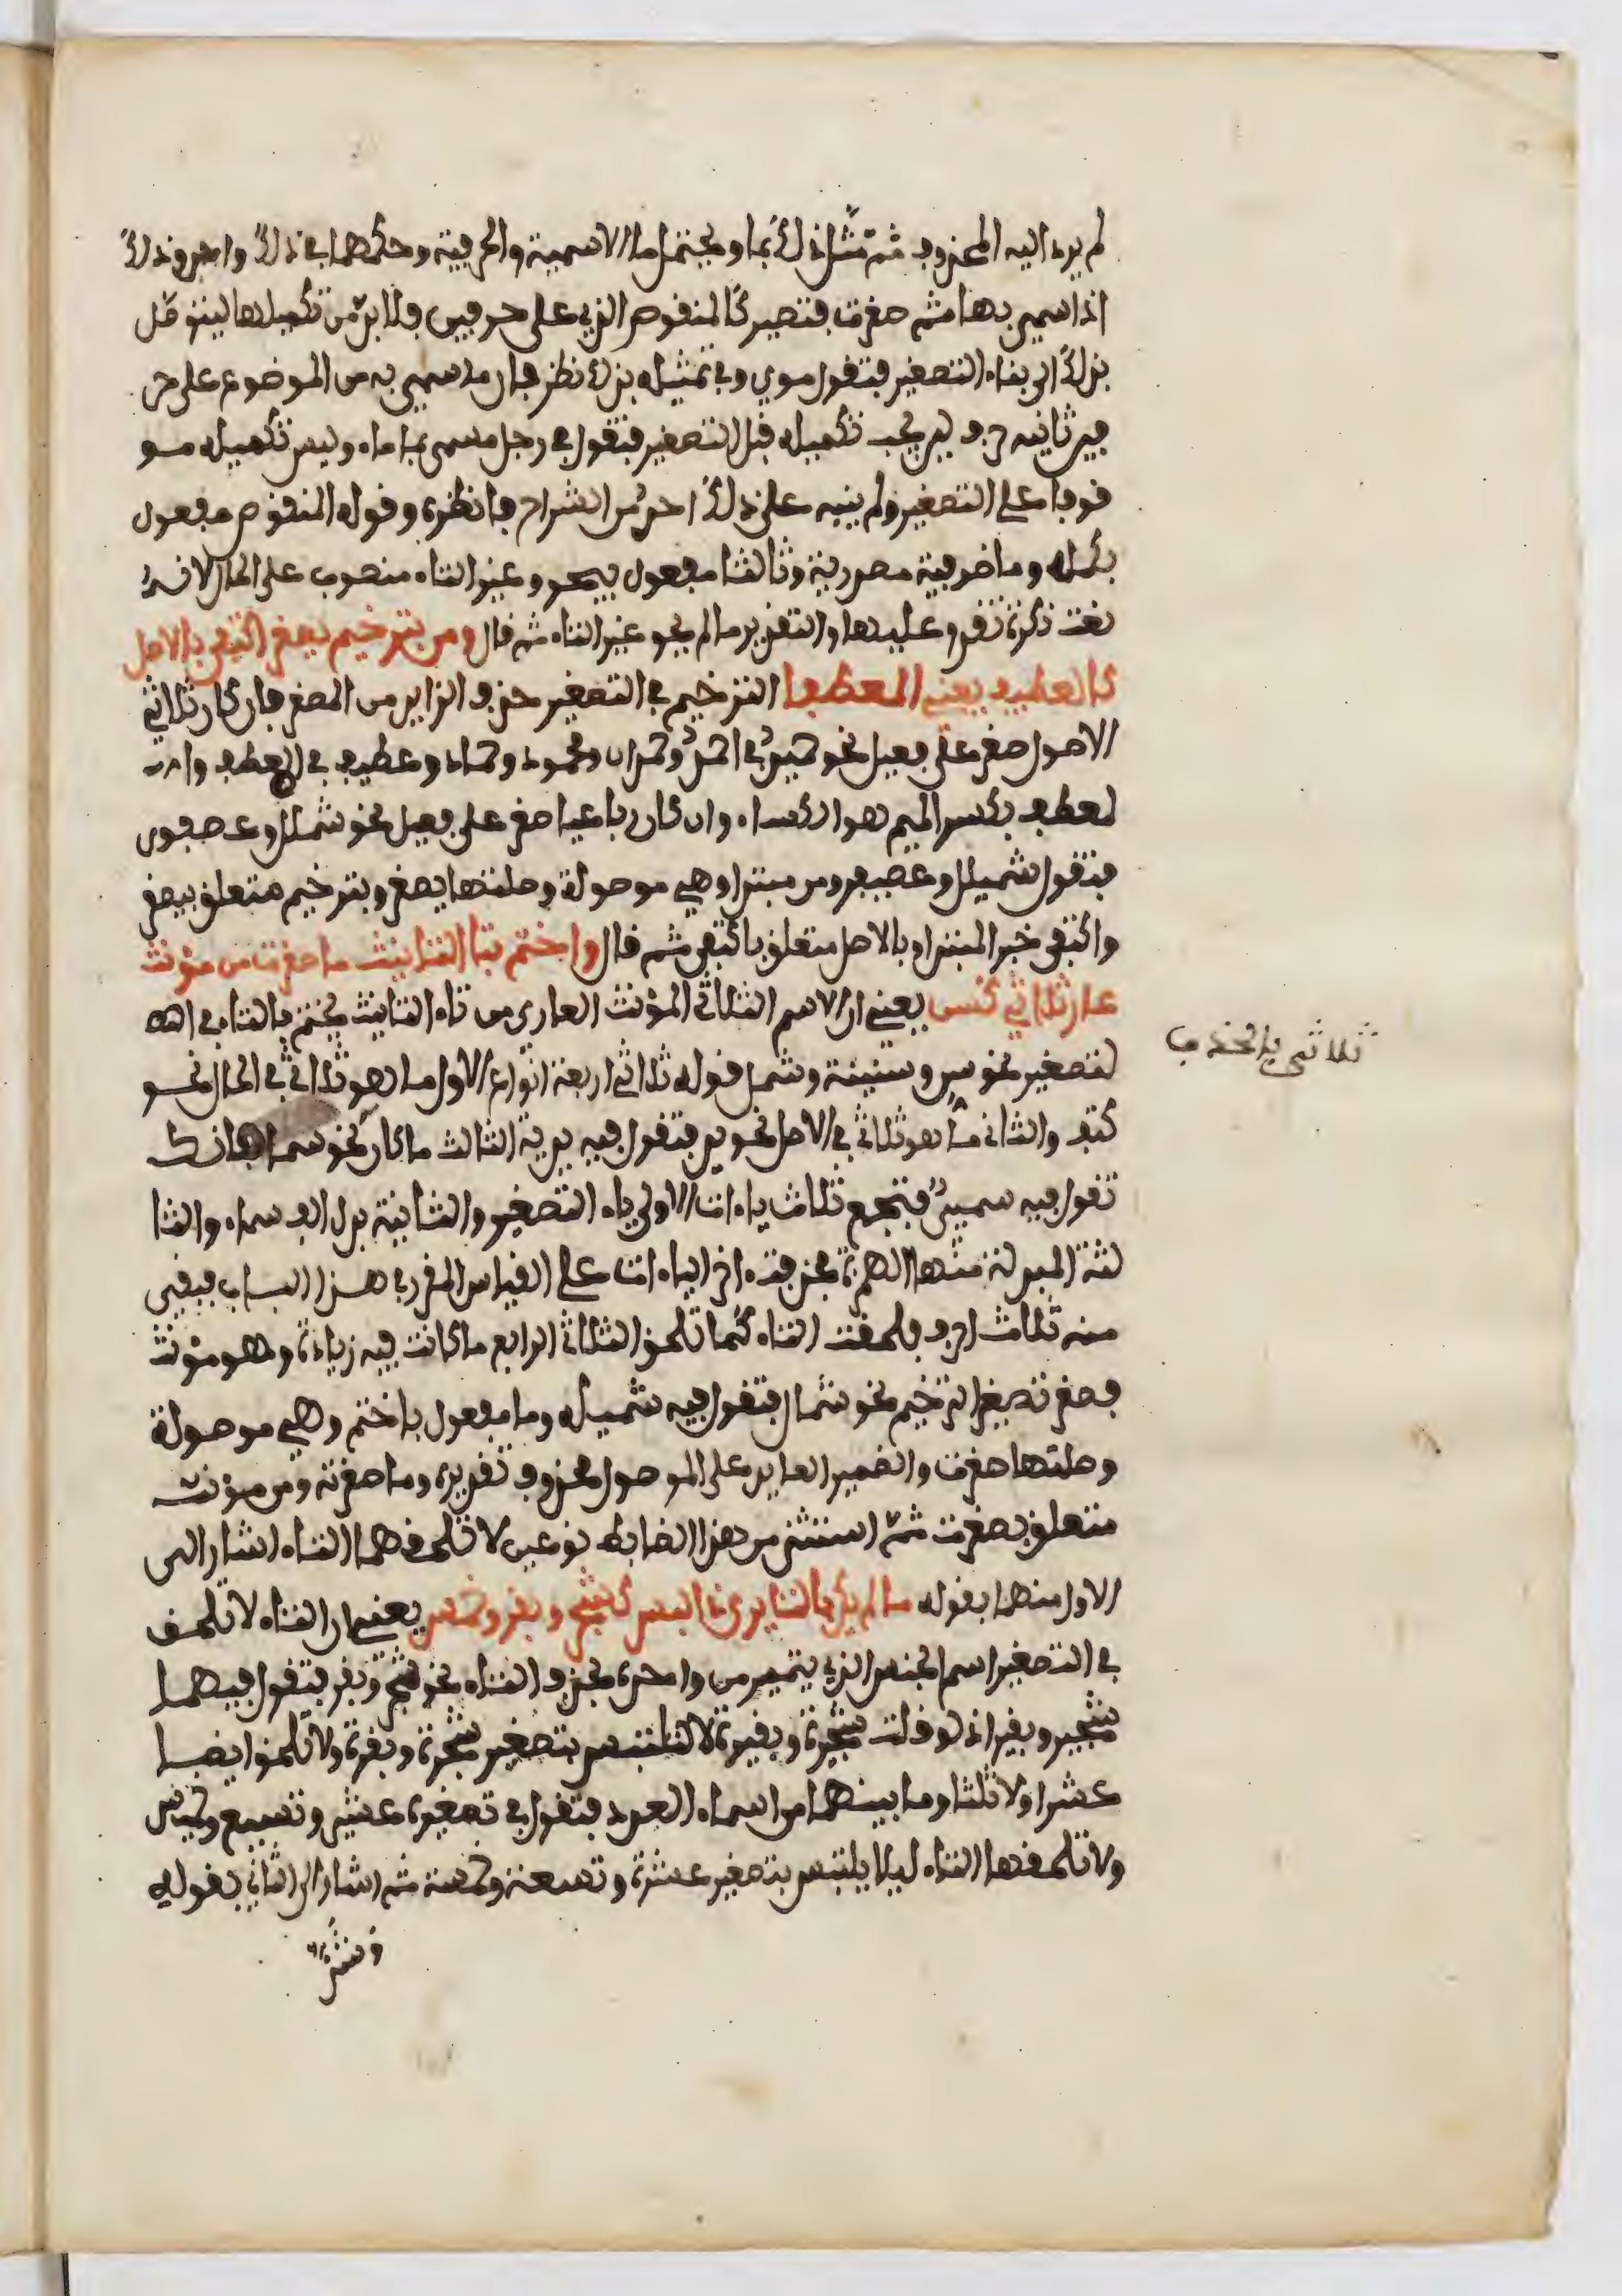 لم يرد اليه المحذوف ثم مثل ذلك بما ويحتمل ما الاسمية والحرفية وحكمهما في ذلك واحد وذلك
اذا سمي بها ثم صغرت فتصير كالمنقوص الذي على حرفين فلا بد من تكميلها ليتوصل
بذلك الى بناء التصغير فتقول موي وفي تمثيله بذلك نظر فان ما سمي به من الموضوع على حر
فين ثانيه حرف لين يجب تكميله قبل التصغير فتقول في رجل مسمى بما ماء وليس تكميله مو
قوفا على التصغير ولم ينبه على ذلك احد من الشراح فانظره وقوله المنقوص مفعول
بكمل وما ظرفية مصدرية وثالثا مفعول بيحو وغير التاء منصوب على الحال لانه
نعت نكرة تقدم عليها والتقدير ما لم يحو غير التاء ثم قال ومن بترخيم يصغر اكتفى بالاصل
كالعطيف يعني المعطفا الترخيم في التصغير حذف الزايد من المصغر فان كان ثلاثي
الاصول صغر على فعيل نحو حميد في احمد وحمدان ومحمود وحماد وعطيف في المعطف وا
لمعطف بكسر الميم هو الكساء وان كان رباعيا صغر على فعيعل نحو شملل وعصفور
فتقول شميلل وعصيفر ومن مبتدا وهي موصولة وصلتها يصغر وبترخيم متعلق بيصغر
واكتفى خبر المبتدا وبالاصل متعلق باكتفى ثم قال واختم بتا التانيث ما صغرت من مؤنث
عار ثلاثي كسن يعني ان الاسم الثلاثي المؤنث العاري من تاء التانيث يختم بالتاء في ا
لتصغير نحو سن وسنينة وشمل قوله ثلاثي اربعة انواع الاول ما هو ثلاثي في الحال نحو
ثلاثي بالحذف
كتف والثاني ما هو ثلاثي في الاصل نحو يد فتقول فيه يدية الثالث ما كان نحو سماء فانك
تقول فيه سميي فتجمع ثلاث ياءات الاولى ياء التصغير والثانية بدل الف سماء والثا
لثة المبدلة منها الهمزة فحذفت اخر الياءات على القياس المقرر في هذا الباب فبقي
منه ثلاث احرف فلحقت التاء كما تلحق الثلاثي الرابع ما كانت فيه زيادة وهو مؤنث
فصغر تصغير الترخيم نحو شمال فتقول فيه شميلة وما مفعول باختم وهي موصولة
وصلتها صغرت والضمير العايد على الموصول محذوف تقديره وما صغرته ومن مؤنث
متعلق بصغرت ثم استثنى من هذا الضابط نوعين لا تلحقهما التاء اشار الى
الاول منهما بقوله ما لم يكن بالتا يرى ذا لبس كشجر وبقر وخمس يعني ان التاء لا تلحق
في التصغير اسم الجنس الذي يتميز من واحده بحذف التاء نحو شجر وبقر فتقول فيهما
شجير وبقير اذ لو قلت شجيرة وبقيرة لالتبس بتصغير شجرة وبقرة ولا تلحق ايضا
عشرا ولا ثلثا وما بينهما من اسماء العدد فتقول في تصغيره عشير وتسيع وخميس
ولا تلحقها التاء ليلا يلتبس بتصغير عشرة وتسعة وخمسة ثم اشار الى الثاني بقوله
وشذ